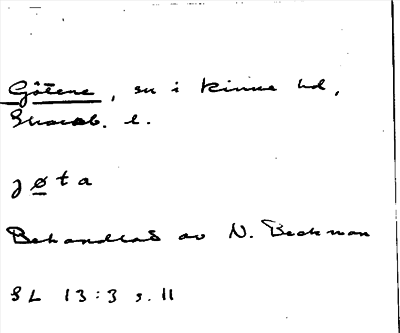 Götene, sn i Kinne hd,
Skarab. l.
jøta
Behandlat av N. Beckman
SL 13:3 s. 11